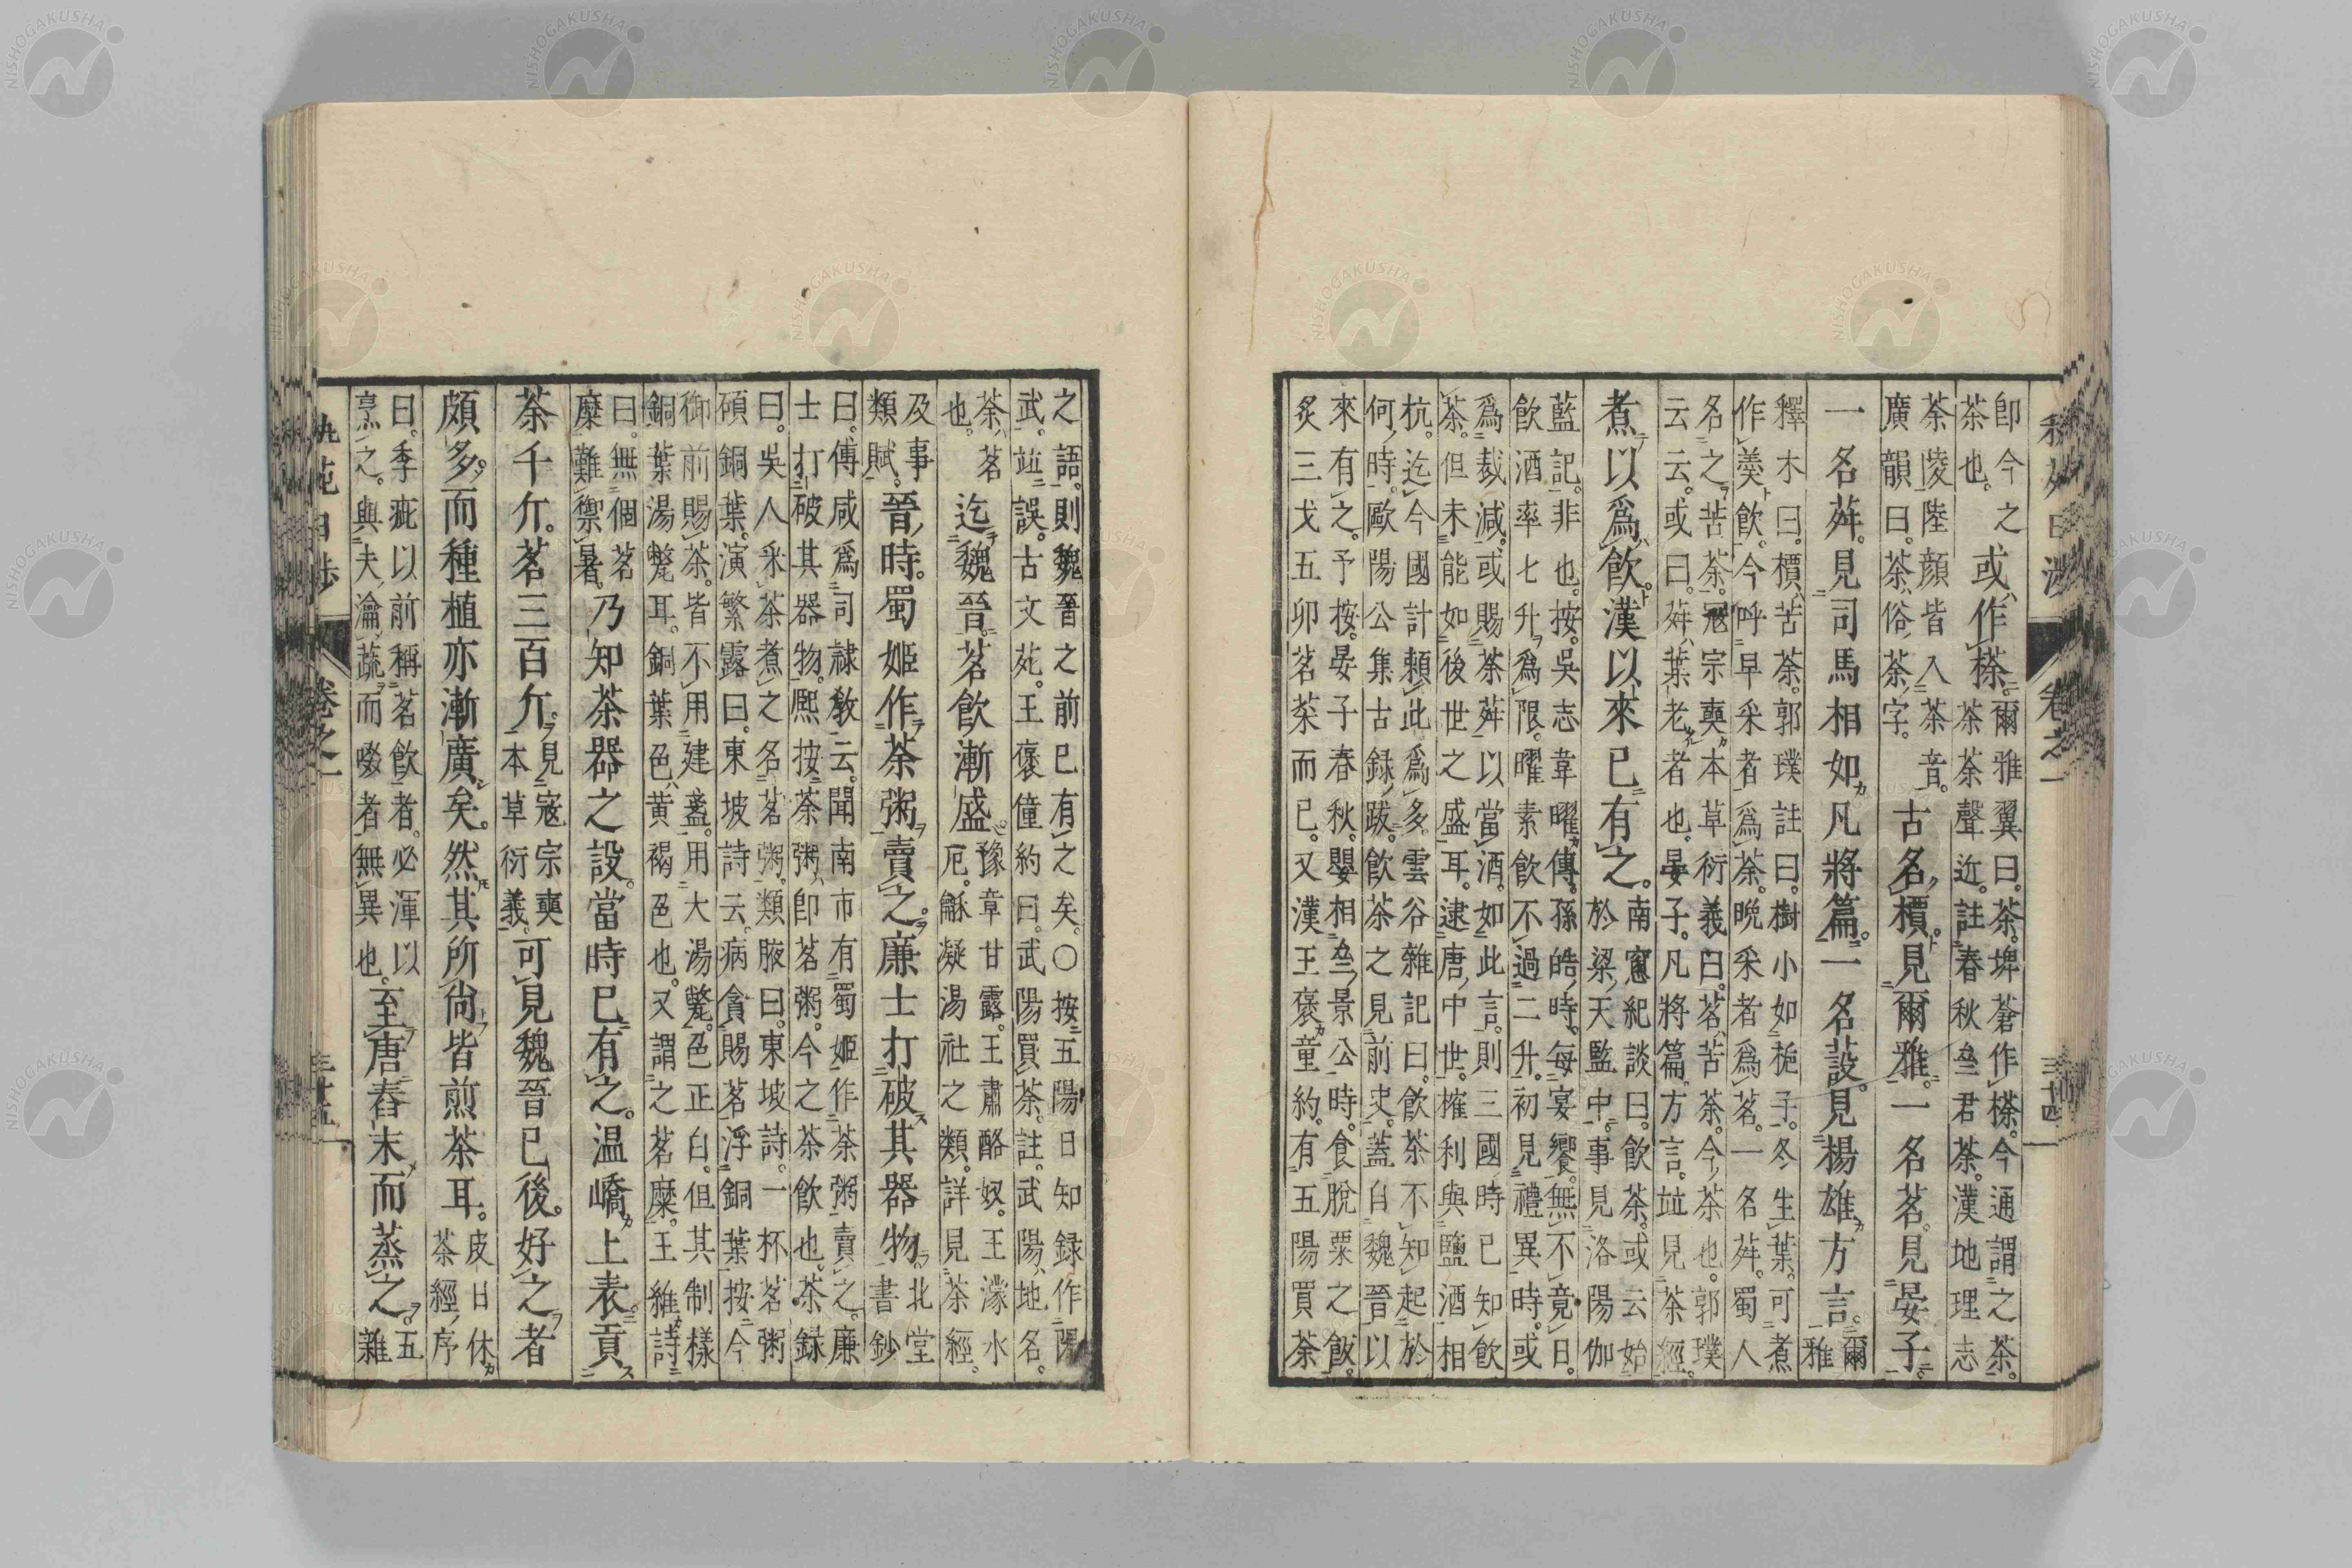 即今之
茶也。
或作㯶。
爾雅翼曰。茶。埤蒼作㯶。今通謂之茶。
茶荼聲近。註春秋亝君荼。漢地理志
荼陵陸顔皆入茶音。
廣韻曰。荼俗茶字。
古名檟。見爾雅。一名茗。見晏子。
一名荈。見司馬相如凡將篇。一名蔎。見楊雄方言。
爾
雅
釋木曰。檟苦荼。郭璞註曰。樹小如梔子。冬生葉。可煮
作羮飲。今呼早采者爲荼。晩采者爲茗。一名荈。蜀人
名之苦荼。冦宗奭本草衍義曰。茗苦荼。今茶也。郭璞
云云。或曰。荈葉老者也。晏子。凡將篇。方言。竝見茶經。
煮以爲飮。漢以來已有之。
南窻紀談曰。飮茶。或云始
於梁天監中。事見洛陽伽
藍記。非也。按。吳志韋曜傳。孫皓時。每宴饗。無不竟日。
飮酒率七升爲限。曜素飮不過二升。初見禮異時。或
爲裁減。或賜荼荈以當酒。如此言。則三國時已知飮
茶。但未能如後世之盛耳。逮唐中世。榷利與鹽酒相
抗。迄今國計頼此爲多。雲谷雜記曰。飮茶不知起於
何時。歐陽公集古録跋。飮茶之見前史。蓋自魏晉以
來有之。予按。晏子春秋。嬰相亝景公時。食脫粟之飯。
炙三戈五卯茗菜而已。又漢王褒童約。有五陽買荼
之語。則魏晉之前已有之矣。○按五陽日知録作
武。竝誤。古文苑。王褒僮約曰。武陽買茶。註。武陽地名。
茶茗
也。
迄魏晉。茗飮漸盛。
豫章甘露。王肅酪奴。王濛水
厄。龢凝湯社之類。詳見茶經。
及事
類賦。
晉時。蜀姬作茶粥賣之。廉士打破其器物。
北堂
書鈔
曰。傳咸爲司隷教云。聞南市有蜀姬作茶粥賣之。廉
士打破其器物。熙按。茶粥。即茗粥。今之茶飮也。茶録
曰。吳人采茶煮之名茗粥。類腋曰。東坡詩。一杯茗粥
碩銅葉。演繁露曰。東坡詩云。病貪賜茗浮銅葉。按今
御前賜茶。皆不用建盞。用大湯氅。色正白。但其制樣
銅葉湯氅耳。銅葉色。黄褐色也。又謂之茗糜。王維詩
曰。無個茗
糜難禦暑。
乃知茶器之設。當時已有之。温嶠上表。貢
茶千斤。茗三百斤。
見寇宗奭
本草衍義。
可見魏晉已後。好之者
頗多。而種植亦漸廣矣。然其所尚皆煎茶耳。
皮日休
茶經序
曰。季疵以前稱茗飮者。必渾以
烹之。與夫瀹蔬而啜者無異也。
至唐舂末而蒸之。
五
雜
卷之一
三十四
卷之一
三十五
NISHOGAKUSHA